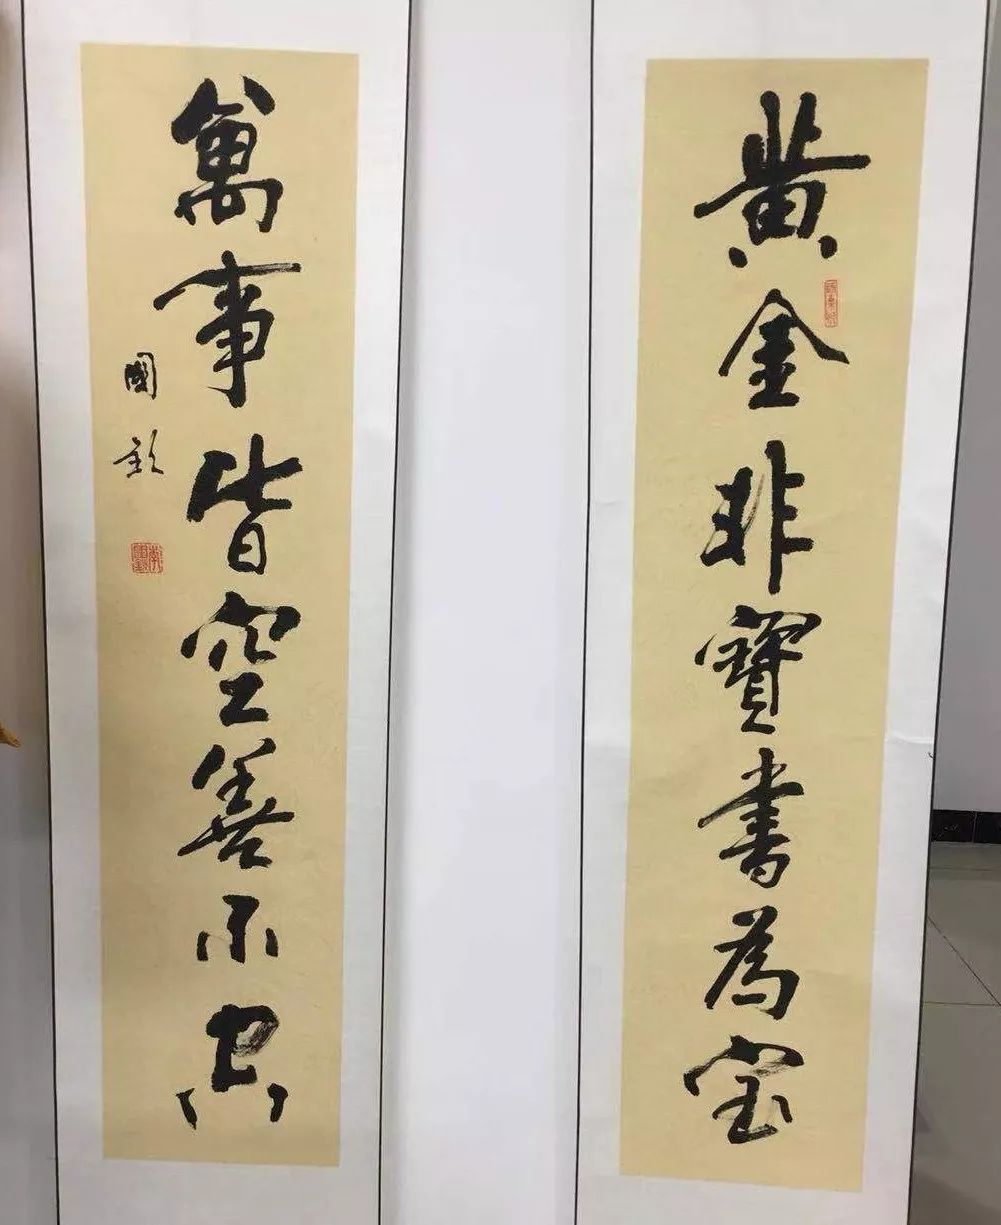 黄金非寶書為宝
萬事皆空善不空
國欽